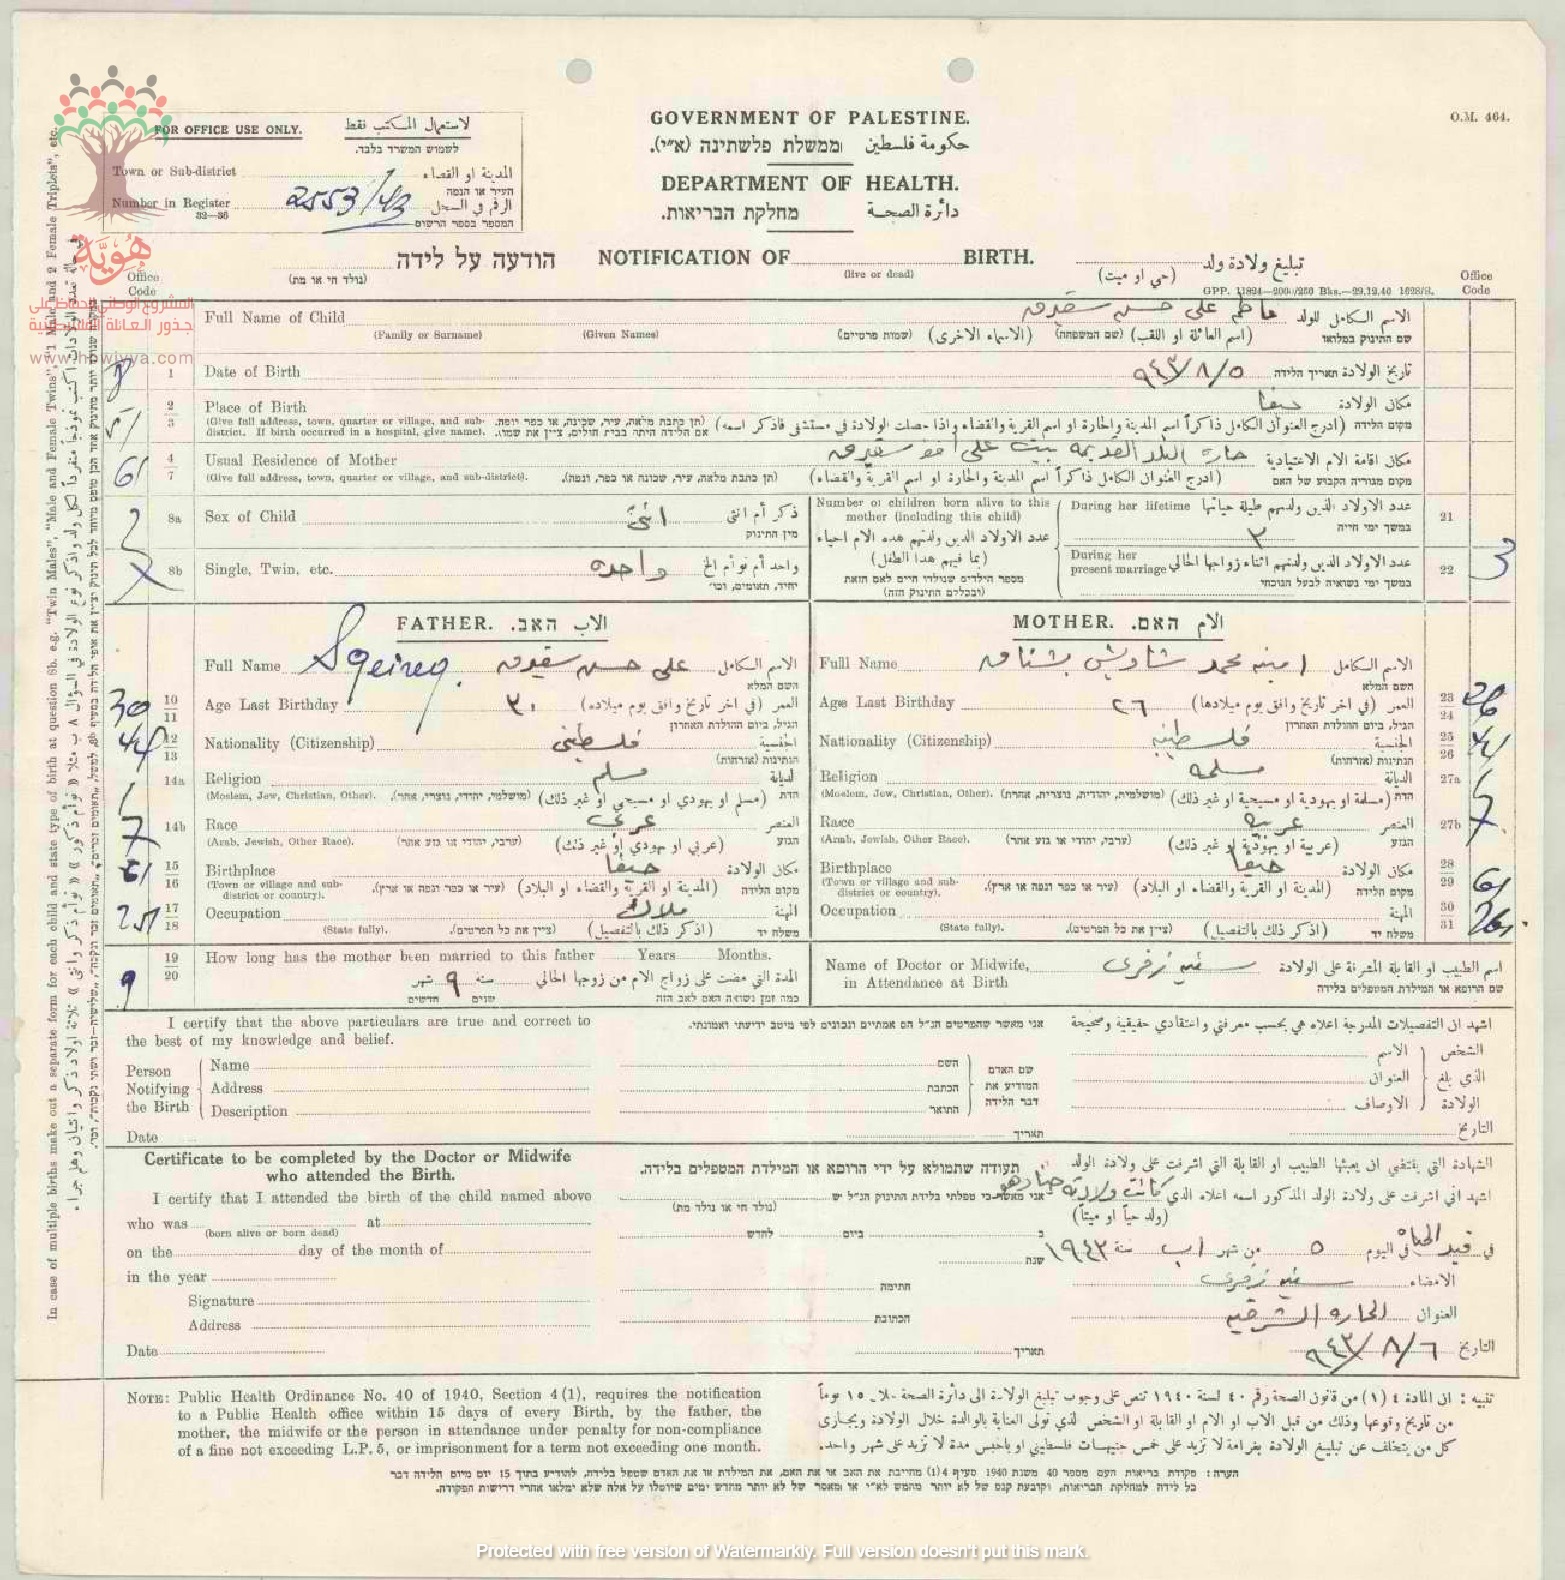 GOVERNMENT OF PALESTINE.
حكومة فلسطين ממשלת פלשתינה (א״י).
DEPARTMENT OF HEALTH.
دائرة الصحة מחלקת הבריאות.
O.M. 464.
FOR OFFICE USE ONLY. لاستعمال المكتب فقط
לשמוש המשרד בלבד.
Town or Sub-district المدينة او القضاء
העיר או הנפה
Number in Register 2553/43 الرقم في السجل
32—36 המספר בספר הרשום
הודעה על לידה NOTIFICATION OF BIRTH. تبليغ ولادة ولد
(נולד חי או מת) (live or dead) (حي او ميت)
Office Code
Office Code
هُويّة
www.howiyya.com
Full Name of Child علي حسن سقيرق الاسم الكامل للولد
(Family or Surname) (Given Names) (שמות פרטיים) (الاسماء الاخرى) (שם המשפחה) (اسم العائلة او اللقب) שם התינוק במלואו
1 Date of Birth ٩٤٣/٨/٥ תאריך הלידה تاريخ الولادة
2 3 Place of Birth حيفا مكان الولادة
(Give full address, town, quarter or village, and sub-district. If birth occurred in a hospital, give name). (תן כתבת מלאה, עיר, שכונה, או כפר ונפה. אם הלידה היתה בבית חולים, ציין את שמו). (ادرج العنوان الكامل ذاكراً اسم المدينة والحارة او اسم القرية والقضاء واذا حصلت الولادة في مستشفى فاذكر اسمه) מקום הלידה
4 7 Usual Residence of Mother حارة البلد القديمه بيت علي سقيرق مكان اقامة الام الاعتيادية
(Give full address, town, quarter or village, and sub-district). (תן כתבת מלאה, עיר, שכונה או כפר, ונפה). (ادرج العنوان الكامل ذاكراً اسم المدينة والحارة او اسم القرية والقضاء) מקום מגוריה הקבוע של האם
8a Sex of Child انثى ذكر أم انثى
מין התינוק
8b Single, Twin, etc. واحده واحد أم توأم الخ
יחיד, תאומים, וכו׳
Number of children born alive to this mother (including this child)
عدد الاولاد الذين ولدتهم هذه الام احياء
(بما فيهم هذا الطفل)
מספר הילדים שנולדו חיים לאם הזאת
(ובכללם התינוק הזה)
During her lifetime عدد الاولاد الذين ولدتهم طيلة حياتها 21
במשך ימי חייה
٣
During her present marriage عدد الاولاد الذين ولدتهم اثناء زواجها الحالي 22 3
במשך ימי נשואיה לבעל הנוכחי
FATHER. الاب האב.
Full Name Sqeireq. علي حسن سقيرق الاسم الكامل
השם המלא
30 10 11 Age Last Birthday ٣٠ العمر (في اخر تاريخ وافق يوم ميلاده)
הגיל, ביום ההולדת האחרון
44 12 13 Nationality (Citizenship) فلسطيني الجنسية
הנתינות (אזרחות)
14a Religion مسلم الديانة
(Moslem, Jew, Christian, Other). (מושלמי, יהודי, נוצרי, אחר). (مسلم او يهودي او مسيحي او غير ذلك) הדת
7 14b Race عربي العنصر
(Arab, Jewish, Other Race). (ערבי, יהודי או גזע אחר) (عربي او يهودي او غير ذلك) הגזע
61 15 16 Birthplace حيفا مكان الولادة
(Town or village and sub-district or country). (עיר או כפר ונפה או ארץ). (المدينة او القرية والقضاء او البلاد) מקום הלידה
251 17 18 Occupation ملاك المهنة
(State fully). (ציין את כל הפרטים). (اذكر ذلك بالتفصيل) משלח יד
MOTHER. الام האם.
Full Name امينه محمد شاويش بشناق الاسم الكامل
השם המלא
Age Last Birthday ٢٦ العمر (في اخر تاريخ وافق يوم ميلادها) 23 24 26
הגיל, ביום ההולדת האחרון
Nationality (Citizenship) فلسطينيه الجنسية 25 26 44
הנתינות (אזרחות)
Religion مسلمه الديانة 27a
(Moslem, Jew, Christian, Other). (מושלמית, יהודית, נוצרית, אחרת) (مسلمة او يهودية او مسيحية او غير ذلك) הדת
Race عربيه العنصر 27b 7
(Arab, Jewish, Other Race). (ערביה, יהודי או גזע אחר) (عربية او يهودية او غير ذلك) הגזע
Birthplace حيفا مكان الولادة 28 29 61
(Town or village and sub-district or country). (עיר או כפר ונפה או ארץ). (المدينة او القرية والقضاء او البلاد) מקום הלידה
Occupation المهنة 30 31 261
(State fully). (ציין את כל הפרטים). (اذكر ذلك بالتفصيل) משלח יד
9 19 20 How long has the mother been married to this father Years Months.
المدة التي مضت على زواج الام من زوجها الحالي سنة ٩ شهر
כמה זמן נשואה האם לאב הזה שנים חדשים
Name of Doctor or Midwife, in Attendance at Birth اسم الطبيب او القابلة المشرفة على الولادة
שם הרופא או המילדת המטפלים בלידה
I certify that the above particulars are true and correct to the best of my knowledge and belief.
אני מאשר שהפרטים הנ״ל הם אמתיים ונכונים לפי מיטב ידיעתי ואמונתי.
اشهد ان التفصيلات المدرجة اعلاه هي بحسب معرفتي واعتقادي حقيقية وصحيحة
Person Notifying the Birth
Name השם الاسم
Address הכתבת العنوان
Description התואר الاوصاف
שם האדם המודיע את דבר הלידה
الشخص الذي بلغ الولادة
Date תאריך التاريخ
Certificate to be completed by the Doctor or Midwife who attended the Birth.
תעודה שתמולא על ידי הרופא או המילדת המטפלים בלידה.
الشهادة التي ينبغي ان يعبئها الطبيب او القابلة التي اشرفت على ولادة الولد
I certify that I attended the birth of the child named above
אני מאשר כי טפלתי בלידת התינוק הנ״ל יש
(נולד חי או נולד מת)
اشهد اني اشرفت على ولادة الولد المذكور اسمه اعلاه الذي كانت ولادته
(ولد حياً او ميتاً)
who was at
(born alive or born dead)
on the day of the month of
ב ביום לחדש
في قيد الحياه في اليوم ٥ من شهر اب سنة ١٩٤٣
in the year שנת
Signature חתימה الامضاء
Address הכתובת العنوان الحاره الشرقيه
Date תאריך التاريخ ٩٤٣/٨/٦
NOTE: Public Health Ordinance No. 40 of 1940, Section 4 (1), requires the notification
to a Public Health office within 15 days of every Birth, by the father, the
mother, the midwife or the person in attendance under penalty for non-compliance
of a fine not exceeding L.P. 5, or imprisonment for a term not exceeding one month.
تنبيه : ان المادة ٤ (١) من قانون الصحة رقم ٤٠ لسنة ١٩٤٠ تنص على وجوب تبليغ الولادة الى دائرة الصحة خلال ١٥ يوماً
من تاريخ وقوعها وذلك من قبل الاب او الام او القابلة او الشخص الذي تولى العناية بالوالدة خلال الولادة ويجازى
كل من يتخلف عن تبليغ الولادة بغرامة لا تزيد على خمس جنيهات فلسطيني او بالحبس مدة لا تزيد على شهر واحد.
הערה: פקודת בריאות העם מספר 40 משנת 1940 סעיף 4(1) מחייבת את האב או את האם, את המילדת או את האדם שטפל בלידה, להודיע בתוך 15 יום מיום הלידה דבר
כל לידה למחלקת הבריאות, וקובעת קנס של לא יותר מחמש לא״י או מאסר של לא יותר מחדש ימים שיוטלו על אלה שלא ימלאו אחרי דרישות הפקודה.
In case of multiple births make out a separate form for each child and state type of birth at question 8b. e.g. "Twin Males", "Male and Female Twins", "1 Male and 2 Female Triplets", etc.
Protected with free version of Watermarkly. Full version doesn't put this mark.